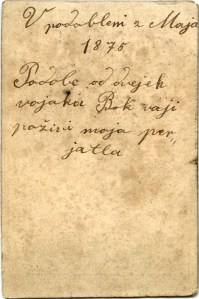 V podoblem 2 Maja
1875
Podobe od dvejeh
vojaku Bok vaji
poživi moja per„
jatla